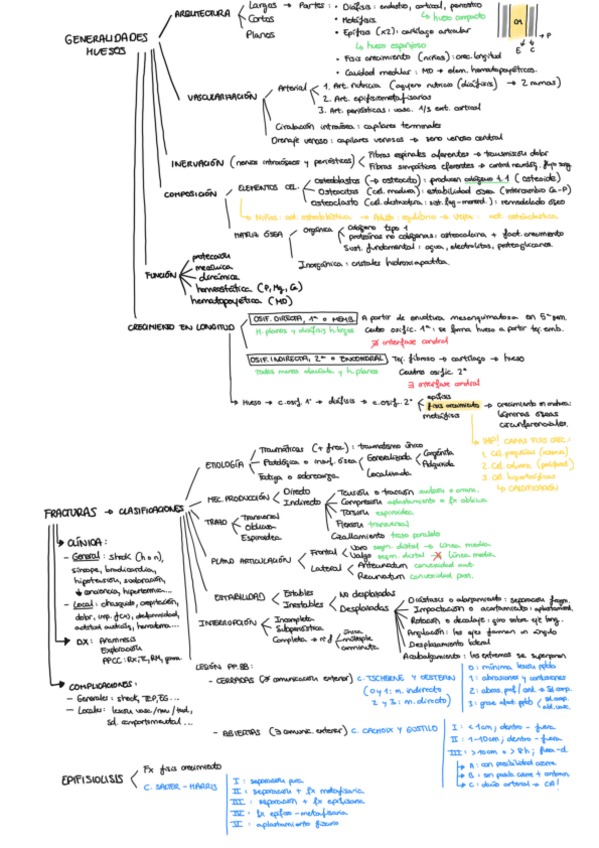 GENERALIDADES HUESOS
ARQUITECTURA
Largos → Partes:
Cortos
Planos
• Diáfisis: endostio, cortical, periostio
↳ hueso compacto
• Metáfisis
• Epífisis (x2): cartílago articular
↳ hueso esponjoso
• Fisis crecimiento (niños): crec. longitud
• Cavidad medular: MO → elem. hematopoyéticos.
E C P
VASCULARIZACIÓN
Arterial
1. Art. nutricia (agujero nutricio (diáfisis) → 2 ramas)
2. Art. epifisometafisarias
3. Art. periósticas: vasc. 1/3 ext. cortical
Circulación intraósea: capilares terminales
Drenaje venoso: capilares venosos → seno venoso central
INERVACIÓN (nervios intraóseos y periósticos)
Fibras espinales aferentes → transmisión dolor
Fibras simpáticas eferentes →
COMPOSICIÓN
ELEMENTOS CEL.
Osteoblastos (→ osteocito): producen colágeno t.1 (osteoide)
Osteocitos (cel. madura): estabilidad ósea (intercambio Ca-P)
Osteoclasto (cel. destructora: ): remodelado óseo
↳ Niños: act. osteoblástica → Adulto: equilibrio → Viejo: act. osteoclástica
MATRIZ ÓSEA
Orgánica
colágeno tipo 1
proteínas no colágenas: osteocalcina + fact. crecimiento
Sust. fundamental: agua, electrolitos, proteoglicanos
Inorgánica: cristales hidroxiapatita.
FUNCIÓN
protección
mecánica
dinámica
homeostática (P, Mg, Ca)
hematopoyética (MO)
CRECIMIENTO EN LONGITUD
OSIF. DIRECTA, 1ª o MEMB. A partir de envoltura mesenquimatosa en 5ª sem.
H. planos y diáfisis h. largos Centro osific. 1º: se forma hueso a partir tej. emb.
∄ interfase condral
OSIF. INDIRECTA, 2ª o ENCONDRAL Tej. fibroso → cartílago → hueso
Todos menos clavícula y h. planos Centro osific. 2º
∃ interfase condral
Hueso → c. osif. 1º → diáfisis → c. osif. 2º
epífisis
fisis crecimiento → crecimiento en anchura:
metáfisis
líneas óseas
circunferenciales.
IMP! CAPAS FISIS CREC.:
1. Cél. pequeñas (reserva)
2. Cél. columna (prolifera)
3. Cél. hipertróficas
↳ CALCIFICACIÓN
FRACTURAS → CLASIFICACIONES
ETIOLOGÍA
Traumáticas (+ frec): traumatismo único
Patológica o insuf. ósea
Generalizada
Congénita
Adquirida
Localizada
Fatiga o sobrecarga
MEC. PRODUCCIÓN
Directo
Indirecto
Tensión o tracción
Compresión aplastamiento o fx oblicua
Torsión espiroidea
Flexión transversal
Cizallamiento trazo paralelo
TRAZO
Transversal
Oblicuo
Espiroidea
PLANO ARTICULACIÓN
Frontal
Varo segm. distal → línea media
Valgo segm. distal línea media
Lateral
Antecurvatum convexidad ant.
Recurvatum convexidad post.
ESTABILIDAD
Estables
Inestables
No desplazadas
Desplazadas
Diástasis o alargamiento: separación fragm.
Impactación o acortamiento: aplastamient.
Rotación o decalaje: giro sobre eje long.
Angulación: los ejes forman un ángulo
Desplazamiento lateral
Acabalgamiento: los extremos se superponen
INTERRUPCIÓN
Incompleta
Subperióstica
Completa → nº f
única
múltiple
conminuta
LESIÓN PP.BB:
- CERRADAS (∄ comunicación exterior) C. TSCHERNE Y OESTERN
(0 y 1: m. indirecto
2 y 3: m. directo)
0: mínima lesión ptbb
1: abrasiones y contusiones
2: abras. prof/ cont. → sd. comp.
3: grave abat. ptbb
- ABIERTAS (∃ comunic. exterior) C. CAUCHOIX Y GUSTILO
I: <1cm; dentro - fuera
II: 1-10cm; dentro - fuera
III: >10cm o >8h; fuera-d
↳ A: con posibilidad cierre
↳ B: sin posib. cierre +
↳ C: daño arterial → CA!
CLÍNICA:
- General: shock (h o n),
síncope, bradicardia,
hipotensión, sudoración,
↓ conciencia, hipertermia...
- Local: chasquido, crepitación,
dolor, imp. fx), deformidad,
actitud antiálg., hematoma...
DX: Anamnesis
Exploración
PPCC: Rx; TC, RM, gamma
COMPLICACIONES:
- Generales: shock, TEP, EG...
- Locales: lesión vasc/nerv/tend.,
sd. compartimental...
EPIFISIOLISIS
Fx fisis crecimiento
C. SALTER-HARRIS
I: separación pura
II: separación + fx metafisaria
III: separación + fx epifisaria
IV: fx epifiso-metafisaria
V: aplastamiento fisario